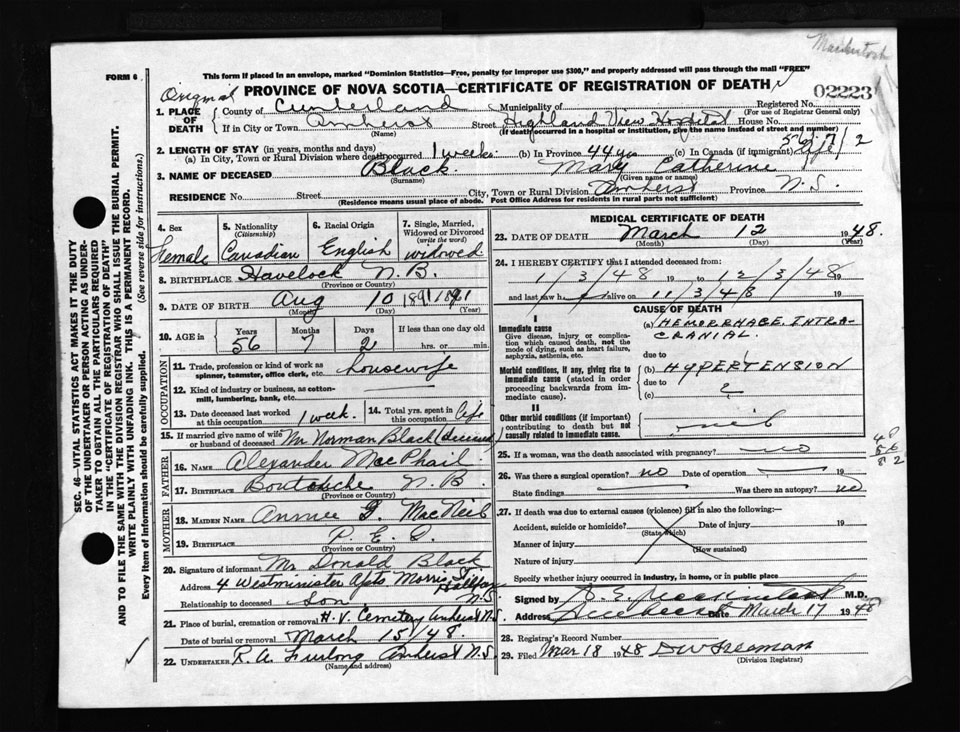 MacKintosh
FORM 6
This form if placed in an envelope, marked "Dominion Statistics—Free, penalty for improper use $300," and properly addressed will pass through the mail "FREE"
Original
PROVINCE OF NOVA SCOTIA—CERTIFICATE OF REGISTRATION OF DEATH
02223
1. PLACE OF DEATH
County of Cumberland Municipality of Registered No.
(For use of Registrar General only)
If in City or Town Amherst Street Highland View Hospital House No.
(Name) (If death occurred in a hospital or institution, give the name instead of street and number)
2. LENGTH OF STAY (in years, months and days)
56/7/2
(a) In City, Town or Rural Division where death occurred 1 week. (b) In Province 44 yrs (c) In Canada (if immigrant)
3. NAME OF DECEASED Black. Mary Catherine
(Surname) (Given name or names)
RESIDENCE No. Street City, Town or Rural Division Amherst Province N.S.
(Residence means usual place of abode. Post Office Address for residents in rural parts not sufficient)
4. Sex
Female
5. Nationality
(Citizenship)
Canadian
6. Racial Origin
English
7. Single, Married, Widowed or Divorced
(write the word)
widowed
8. BIRTHPLACE Havelock N.B.
(Province or Country)
9. DATE OF BIRTH Aug 10 1891 1891
(Month) (Day) (Year)
10. AGE in
Years Months Days If less than one day old
56 7 2 hrs. or min.
OCCUPATION
11. Trade, profession or kind of work as spinner, teamster, office clerk, etc. housewife
12. Kind of industry or business, as cotton-mill, lumbering, bank, etc.
13. Date deceased last worked at this occupation 1 week. 14. Total yrs. spent in this occupation life
15. If married give name of wife or husband of deceased Mr Norman Black (deceased)
FATHER
16. NAME Alexander MacPhail
17. BIRTHPLACE N.B.
(Province or Country)
MOTHER
18. MAIDEN NAME MacNeil
19. BIRTHPLACE P.E.I.
(Province or Country)
20. Signature of informant Mr Donald Black
Address 4 Westminister Apts Morris St Halifax N.S.
Relationship to deceased Son
21. Place of burial, cremation or removal H.V. Cemetery Amherst N.S.
Date of burial or removal March 15/48.
22. UNDERTAKER R.A. Furlong Amherst N.S.
(Name and address)
MEDICAL CERTIFICATE OF DEATH
23. DATE OF DEATH March 12 1948.
(Month) (Day) (Year)
24. I HEREBY CERTIFY that I attended deceased from:
1/3/48 19 to 12/3/48 19
and last saw h alive on 11/3/48 19
CAUSE OF DEATH
I
Immediate cause
Give disease, injury or complication which caused death, not the mode of dying, such as heart failure, asphyxia, asthenia, etc.
(a) HEMORRHAGE, INTRA-CRANIAL.
due to
Morbid conditions, if any, giving rise to immediate cause (stated in order proceeding backwards from immediate cause).
(b) HYPERTENSION
due to
(c) ?
II
Other morbid conditions (if important) contributing to death but not causally related to immediate cause.
nil
25. If a woman, was the death associated with pregnancy? no
26. Was there a surgical operation? no Date of operation 19
State findings Was there an autopsy? no
27. If death was due to external causes (violence) fill in also the following:—
Accident, suicide or homicide? Date of injury 19
(State which)
Manner of injury
(How sustained)
Nature of injury
Specify whether injury occurred in industry, in home, or in public place
Signed by M.D.
Address Date March 17 1948
28. Registrar's Record Number
29. Filed Mar 18 1948 D W Freeman
(Division Registrar)
SEC. 46—VITAL STATISTICS ACT MAKES IT THE DUTY
OF THE UNDERTAKER OR PERSON ACTING AS UNDER-
TAKER TO OBTAIN ALL THE PARTICULARS REQUIRED
IN THE "CERTIFICATE OF REGISTRATION OF DEATH"
AND TO FILE THE SAME WITH THE DIVISION REGISTRAR WHO SHALL ISSUE THE BURIAL PERMIT.
WRITE PLAINLY WITH UNFADING INK. THIS IS A PERMANENT RECORD.
Every item of information should be carefully supplied. (See reverse side for instructions.)